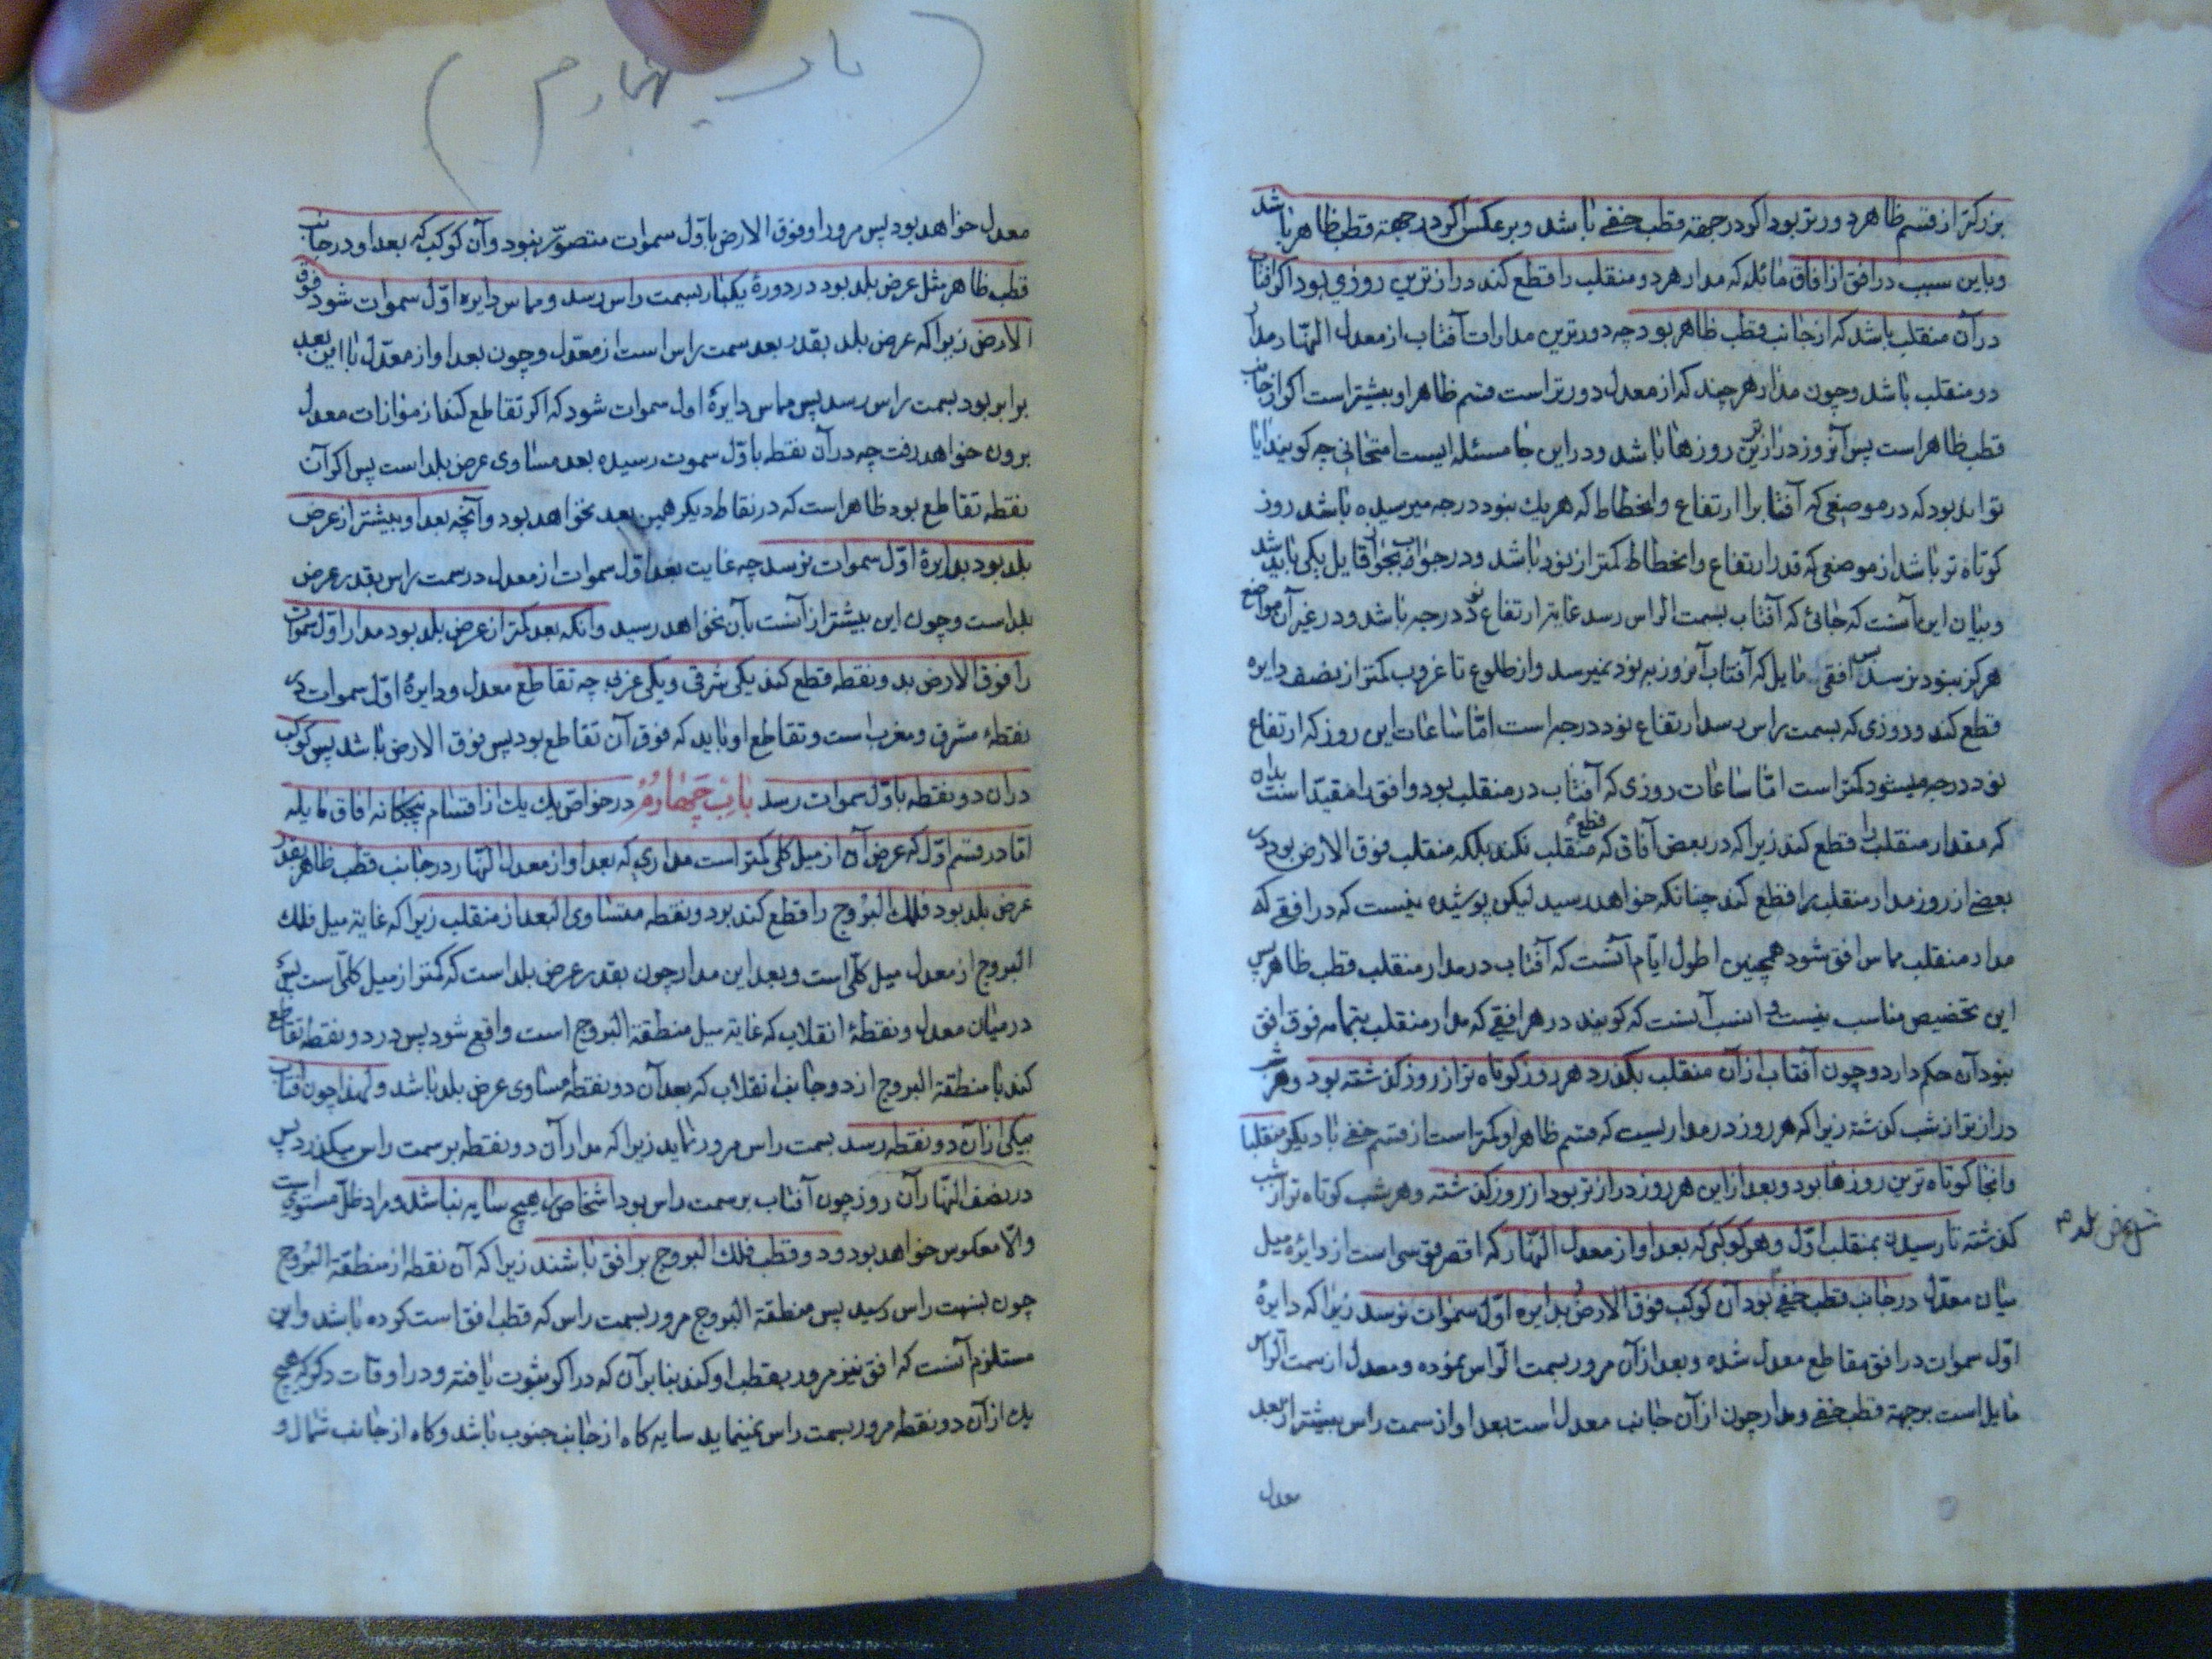 بزرکتر از قسم ظاهر دورتر بود اکر در جهة قطب خفی باشد و بر عکس اکر در جهة قطب ظاهر باشد
و باین سبب در افق از افاق مائله که مدار هر دو منقلب را قطع کند درازترین روزی بود اکر افتاب
در آن منقلب باشد که از جانب قطب ظاهر بود چه دورترین مدارات آفتاب از معدل النهار مدار
دو منقلب باشد و چون مدار هر چند که از معدل دورتر است قسم ظاهر او بیشتر است اکر از جانب
قطب ظاهر است پس آنروز درازترین روزها باشد و در این جا مسئله ایست امتحانی چه کویند ایا
تواند بود که در موضعی که آفتاب را ارتفاع و انحطاط که هر یک بنود درجه میرسیده باشد روز
کوتاه تر باشد از موضعی که قدر ارتفاع و انحطاط کمتر از نود باشد و در جواب بجواز قایل یکی باید شد
و بیان این آنست که جائی که آفتاب بسمت الراس رسد غایة ارتفاع نود درجه باشد و در غیر آن مواضع
هرکز بنود نرسد پس افقی مایل که آفتاب آنروز به نود نمیرسد و از طلوع تا غروب کمتر از نصف دایره
قطع کند و روزی که بسمت راس رسد ارتفاع نود درجه است امّا ساعات این روز که ارتفاع
نود درجه میشود کمتر است امّا ساعات روزی که آفتاب در منقلب بود و افق را مقید است بدان
که مقدار منقلب را قطع کند زیرا که در بعض آفاق که قطع منقلب نکند بلکه منقلب فوق الارض بود در
بعضی از روز مدار منقلب را قطع کند چنانکه خواهد رسید لیکن پوشیده نیست که در افقی که
مدار منقلب مماس افق شود همچنین اطول ایام آنست که آفتاب در مدار منقلب قطب ظاهر پس
این تخصیص مناسب نیست و انسب آنست که کویند در هر افقی که مدار منقلب بتمامه فوق افق
نبود آن حکم دارد و چون آفتاب از آن منقلب بکذرد هر روز کوتاه تر از روز کذشته بود و هر شب
درازتر از شب کذشته زیرا که هر روز در مداریست که قسم ظاهر او کمتر است از قسم خفی تا دیکر منقلب
وانجا کوتاه ترین روزها بود و بعد از این هر روز درازتر بود از روز کذشته و هر شب کوتاه تر از شب
کذشته تا رسیدن بمنقلب اوّل و هر کوکبی که بعد او از معدل النهار که اقصر قوسی است از دایره میل
میان معدّل در جانب قطب خفی بود آن کوکب فوق الارض بدایره اوّل سموات نرسد زیرا که دایرهٔ
اوّل سموات در افق مقاطع معدل شده و بعد از آن مرور بسمت الراس نموده و معدل از سمت الراس
مایل است بر جهة قطب خفی و مدار چون از آن جانب معدل است بعد او از سمت راس بیشتر از بعد
معدل
باب چهارم
معدل خواهد بود پس مرور او فوق الارض باوّل سموات متصوّر نبود و آن کوکب که بعد او در جانب
قطب ظاهر مثل عرض بلد بود در دورهٔ یکبار بسمت راس رسد و مماس دایره اوّل سموات شود فوق
الارض زیرا که عرض بلد بقدر بعد سمت راس است از معدّل و چون بعد او از معدّل با این بعد
برابر بود بسمت راس رسد پس مماس دایرهٔ اول سموات شود که اکر تقاطع کند از موازات معدل
برون خواهد رفت چه در آن نقطه باوّل سموت رسیده بعد مساوی عرض بلد است پس اکر آن
نقطه تقاطع بود ظاهر است که در نقاط دیکر همین بعد نخواهد بود و آنچه بعد او بیشتر از عرض
بلد بود بدایرهٔ اوّل سموات نرسد چه غایت بعد اوّل سموات از معدل در سمت راس بقدر عرض
بلد است و چون این بیشتر از آنست بآن نخواهد رسید و آنکه بعد کمتر از عرض بلد بود مدار اوّل سموات
را فوق الارض بدو نقطه قطع کند یکی شرقی و یکی غربی چه تقاطع معدل و دایرهٔ اوّل سموات در
نقطهٔ مشرق و مغرب است و تقاطع او باید که فوق آن تقاطع بود پس فوق الارض باشد پس کوکب
در ان دو نقطه باوّل سموات رسد باب چهارم در خواص یک یک از اقسام پنجکانه افاق مایله
امّا در قسم اوّل که عرض آن از میل کلی کمتر است مداری که بعد او از معدل النهار در جانب قطب ظاهر بقدر
عرض بلد بود فلک البروج را قطع کند بر دو نقطه متساوی البعد از منقلب زیرا که غایة میل فلک
البروج از معدل میل کلّی است و بعد این مدار چون بقدر عرض بلد است که کمتر از میل کلّی است پس
در میان معدل و نقطهٔ انقلاب که غایة میل منطقة البروج است واقع شود پس در دو نقطه تقاطع
کند با منطقة البروج از دو جانب انقلاب که بعد آن دو نقطه مساوی عرض بلد باشد و لهذا چون آفتاب
بیکی از آن دو نقطه رسد بسمت راس مرور نماید زیرا که مدار آن دو نقطه بر سمت راس میکذرد پس
در نصف النهار آن روز چون آفتاب بر سمت راس بود اشخاص را هیچ سایه نباشد و مراد ظلّ مستوی است
والّا معکوس خواهد بود و دو قطب فلک البروج بر افق باشند زیرا که آن نقطه از منطقة البروج
چون بسمت راس رسید پس منطقة البروج مرور بسمت راس که قطب افق است کرده باشد و این
مستلزم آنست که افق نیز مرور بقطب او کند بنا بر آن که در اکر ثبوت یافته و در اوقات دیکر که هیچ
یک از آن دو نقطه مرور بسمت راس نمینماید سایه کاه از جانب جنوب باشد و کاه از جانب شمال و